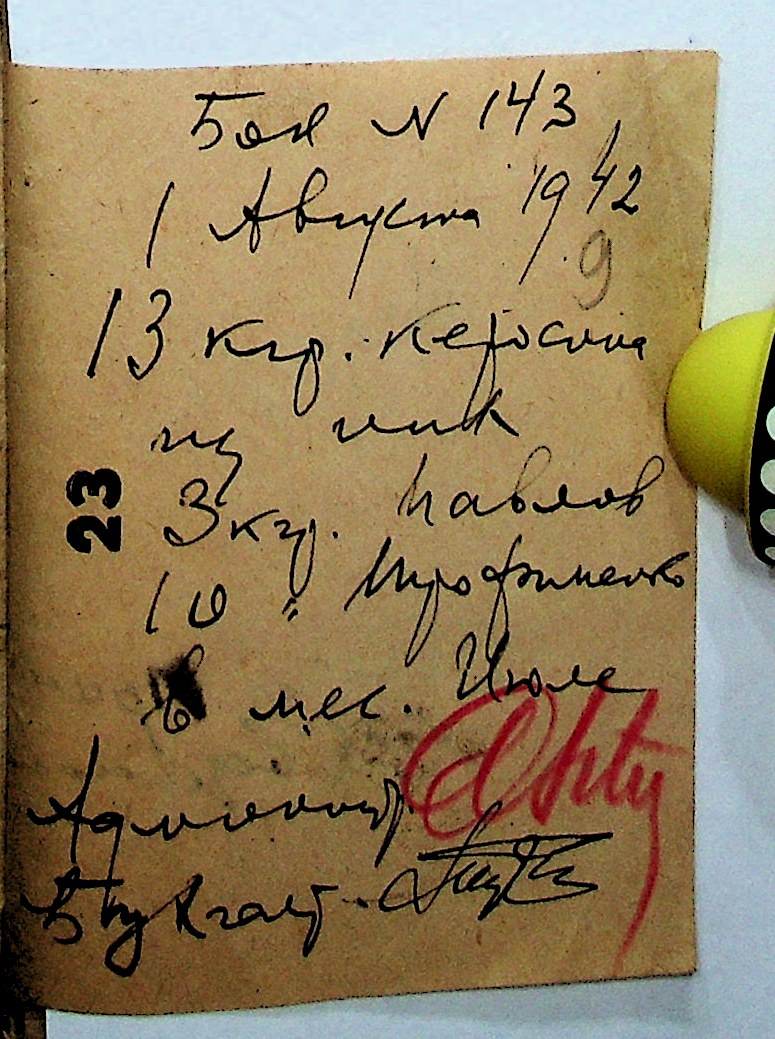 Бон N 143
1 Августа 1942
9
13 кгр. керосина
из них
3 кгр. Павлов
10 " Трофименко
в мес. Июле
23
Админист.
Бухгалт.